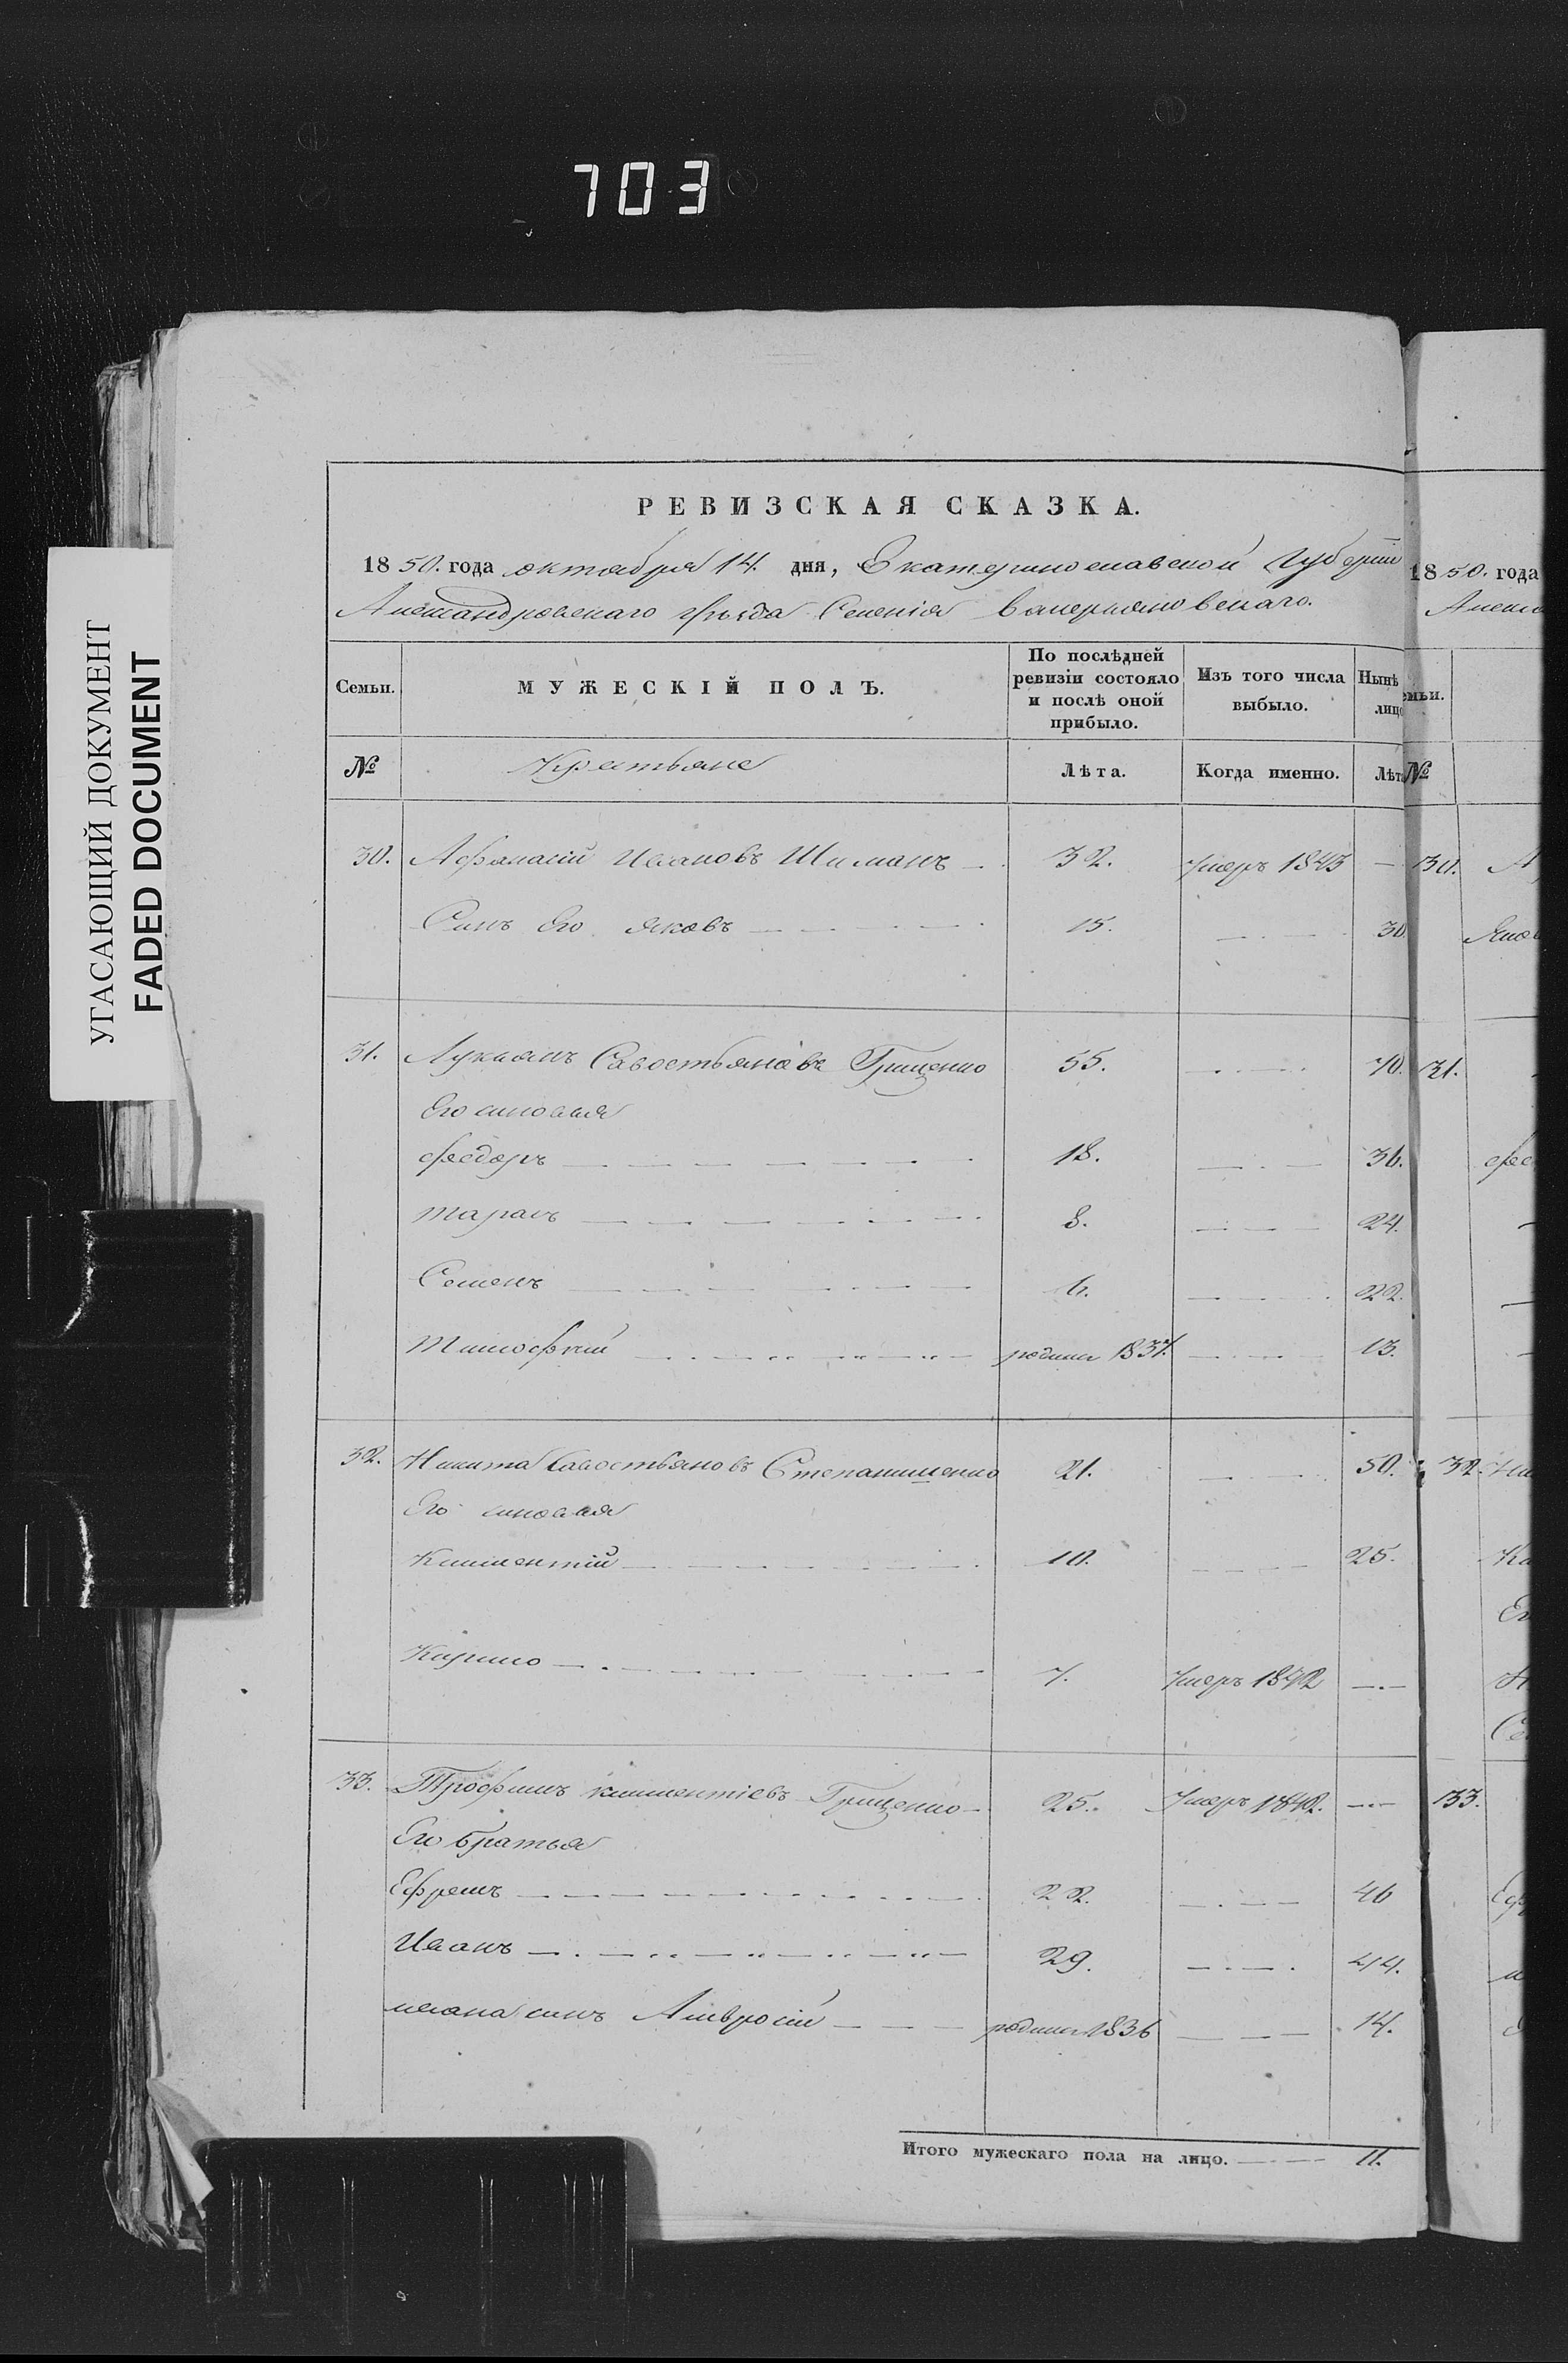 703
УГАСАЮЩИЙ ДОКУМЕНТ
FADED DOCUMENT
РЕВИЗСКАЯ СКАЗКА.
1850. года октября 14. дня, Екатеринославской Губерніи
Александровскаго уѣзда Селенія Валерьяновскаго.
Семьи. МУЖЕСКІЙ ПОЛЪ. По послѣдней ревизіи состояло и послѣ оной прибыло. Изъ того числа выбыло. Нынѣ лицо
№ Крестьяне Лѣта. Когда именно. Лѣта
30. Афанасій Ивановъ Шиманъ 32. умеръ 1843 —
Сынъ Его Яковъ 15. — 30
31. Лукьянъ Савостьяновъ Грищенко 55. — 70.
Его сыновья
Федоръ 18. — 36.
Тарасъ 8. — 24.
Семенъ 6. — 22.
Тимофей родился 1837. — 13.
32. Никита Савостьяновъ Степанищенко 21. — 50.
Его сыновья
Климентій 10. — 25.
Карпъ 7. умеръ 1842 —
33. Трофимъ Климентіевъ Грищенко 25. умеръ 1842. —
Его братья
Ефремъ 22. — 46
Иванъ 29. — 44.
Ивана сынъ Амвросій родился 1836 — 14.
Итого мужескаго пола на лицо. 11.
1850. года
емьи.
№
30.
31.
32.
33.